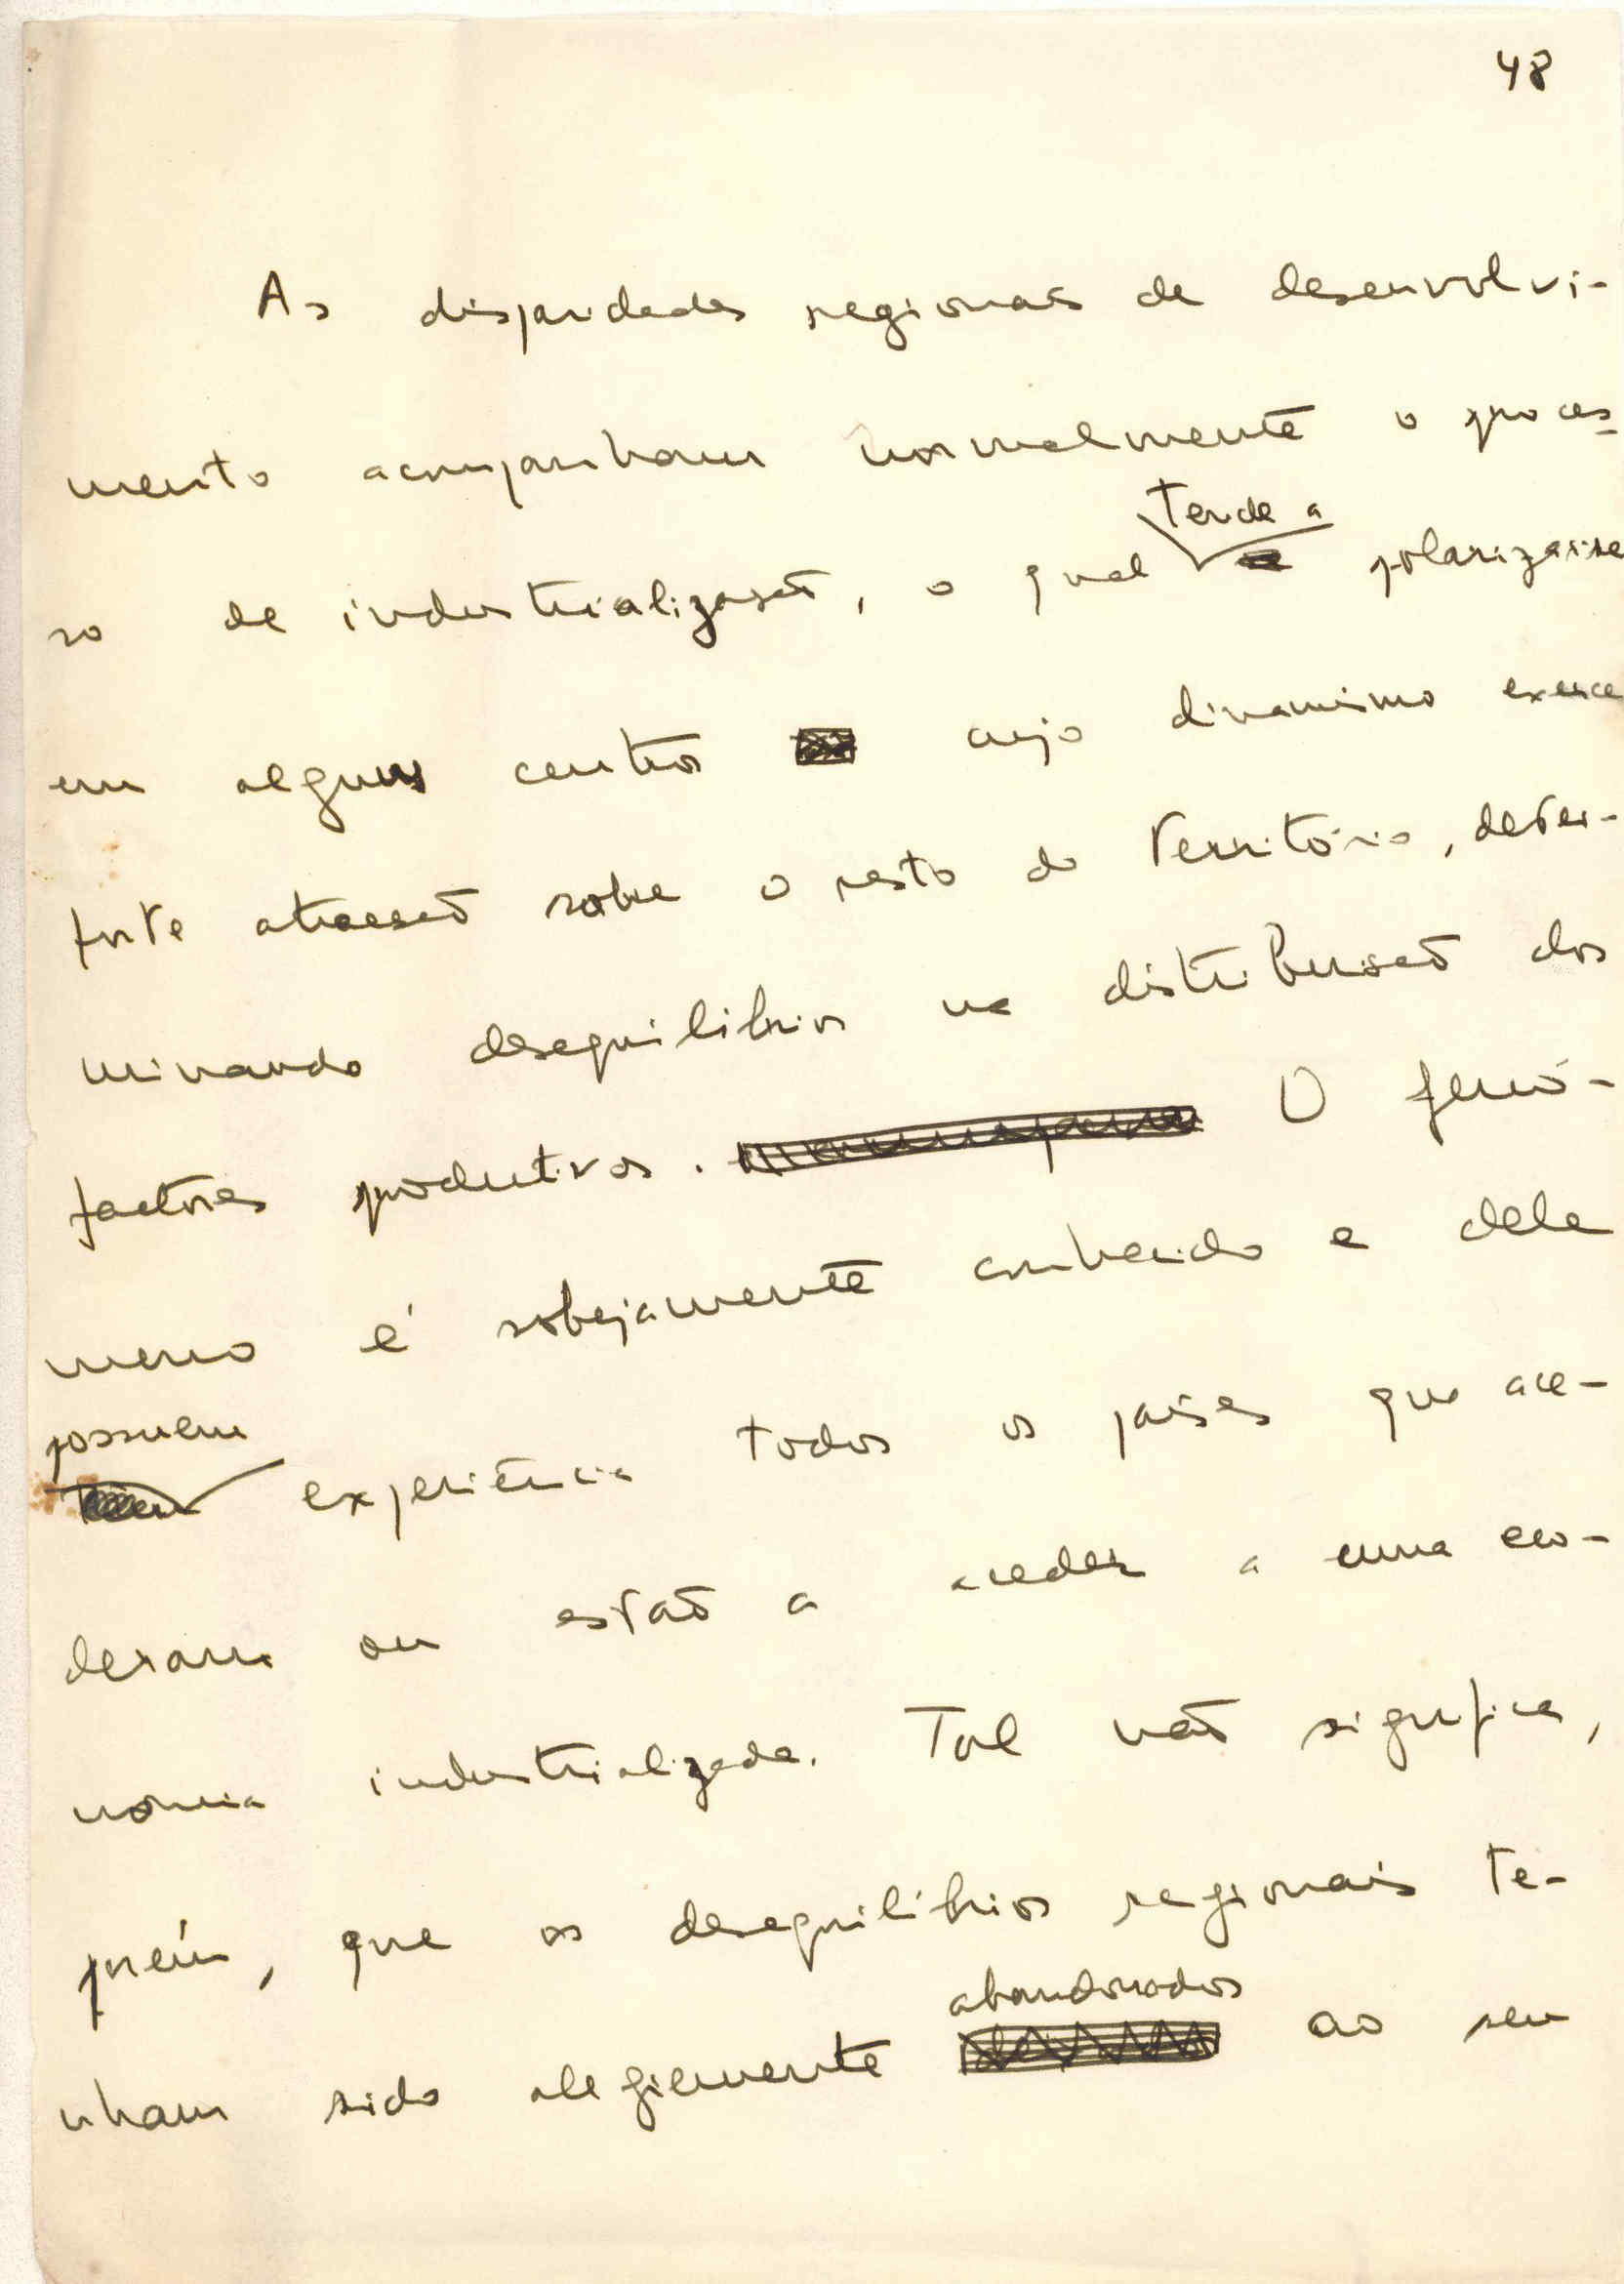 48
As disparidades regionais de desenvolvi-
mento acompanham normalmente o proces-
so de industrialização, o qual tende a polarizar-se
em alguns centros cujo dinamismo exerce
forte atracção sobre o resto do território, deter-
minando desequilíbrios na distribuição dos
factores produtivos. O fenó-
meno é sobejamente conhecido e dele
possuem
experiência todos os países que ace-
deram ou estão a aceder a uma eco-
nomia industrializada. Tal não significa,
porém, que os desequilíbrios regionais te-
abandonados
nham sido alegremente ao seu